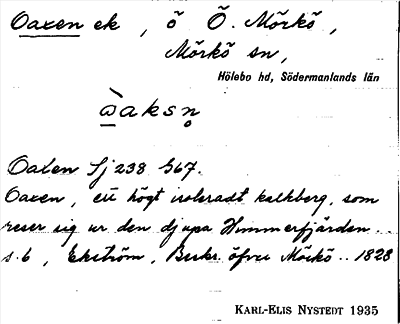 Oaxen ek, ö Ö. Mörkö,
Mörkö sn,
Hölebo hd, Södermanlands län
ὼaksn̥
Oaxen Sj 238 567.
Oaxen, ett högt isoleradt kalkberg, som
reser sig ur den djupa Himmerfjärden..
s. 6, Ekström, Beskr. öfver Mörkö.. 1828
KARL-ELIS NYSTEDT 1935